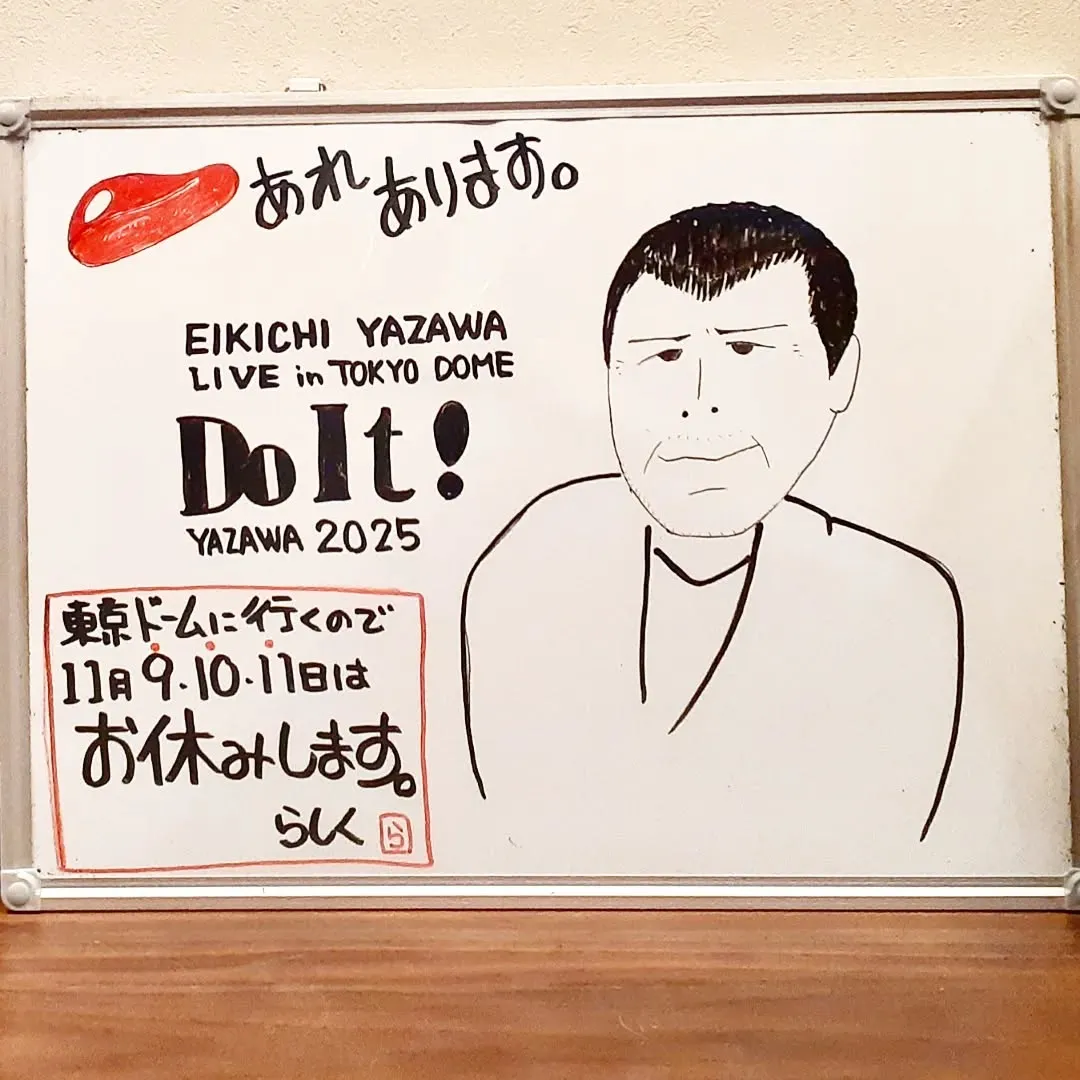 あれあります。
EIKICHI YAZAWA
LIVE in TOKYO DOME
Do It!
YAZAWA 2025
東京ドームに行くので
11月9.10.11日は
お休みします。
らしく ら